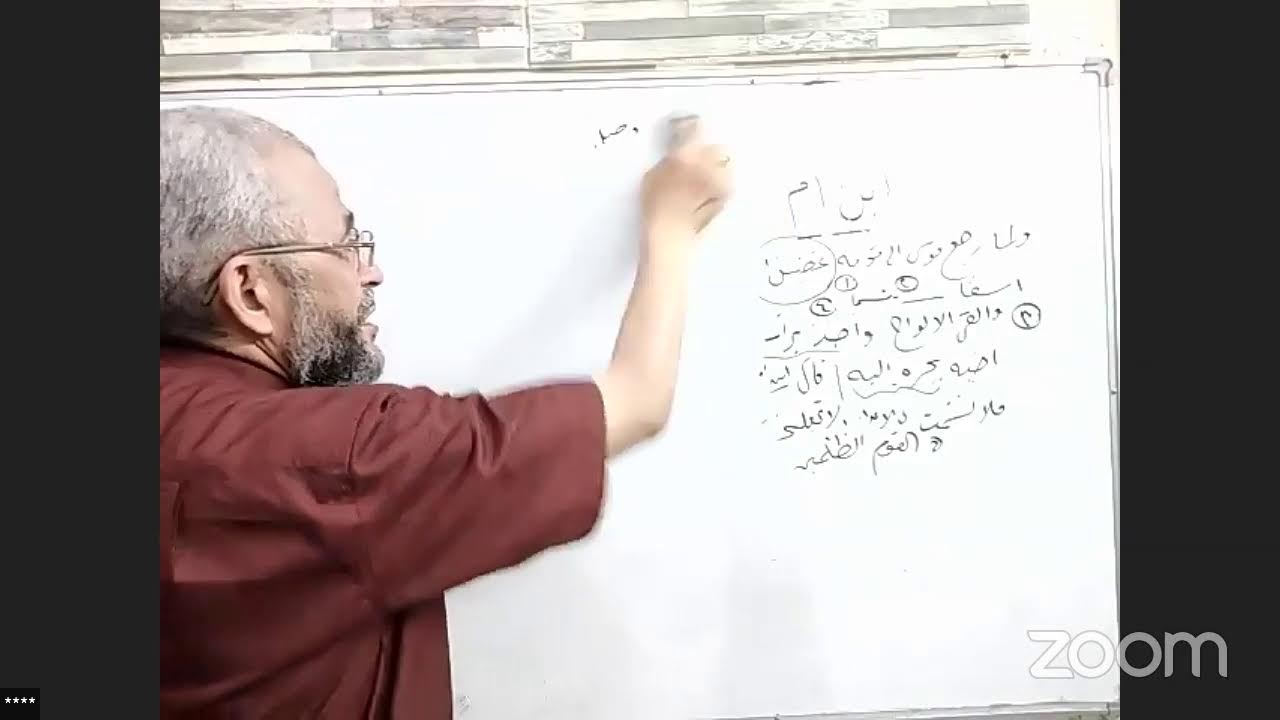 وصل
ابن ام
ولما رجع موسى الى قومه غضبن
١
اسفا بئسما
٣ والقى الالواح واخذ براس
اخيه يجره اليه قال ابن
فلا تشمت ولا تجعلنى
القوم الظلمين
zoom
****